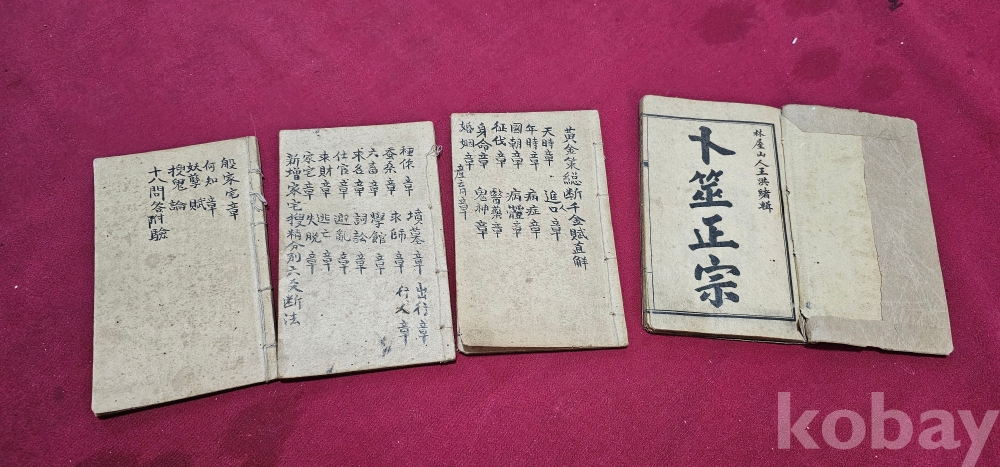 林屋山人王洪緒輯
卜筮正宗
黃金策總断千金賦直解
天時章 進人口章
年時章 病症章
國朝章 病體章
征伐章 醫藥章
身命章 鬼神章
婚姻章 產育章
種作章 墳墓章 出行章
蚕桑章 求師章 行人章
六畜章 學館章
求名章 詞訟章
仕宦章 避亂章
求財章 逃亡章
家宅章 失脱章
新增家宅搜精分別六爻断法
船家宅章
何知章
妖孽賦
搜鬼論
十八問答附驗
kobay